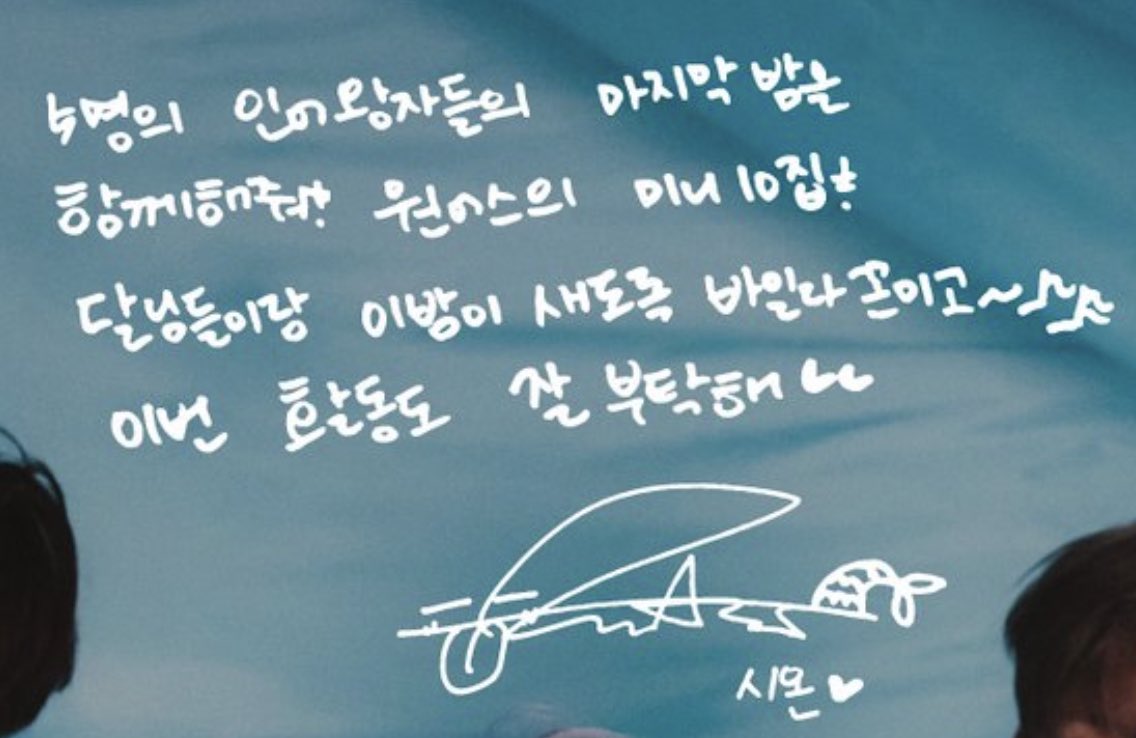 5명의 인어왕자들의 마지막 밤을
함께해줘! 원어스의 미니 10집!
달님들이랑 이밤이 새도록 바일라 콘미고~♪♬
이번 활동도 잘 부탁해
시온♥